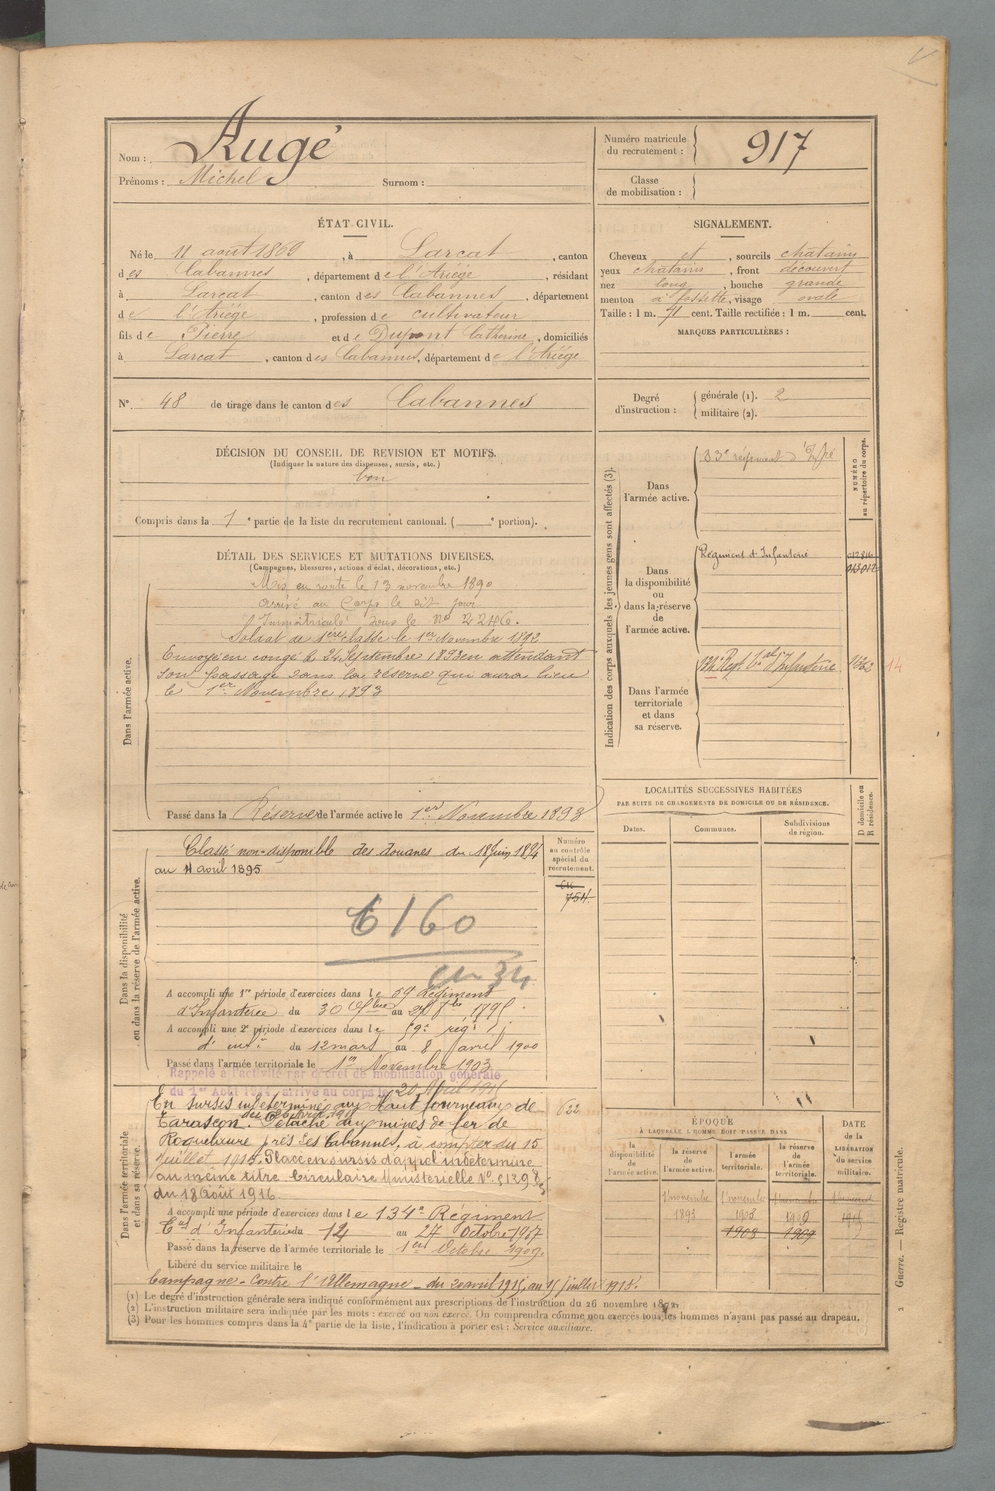 Nom : Augé
Prénoms : Michel Surnom :
Numéro matricule du recrutement : 917
Classe de mobilisation :
ÉTAT-CIVIL.
Né le 11 août 1869, à Larcat, canton
des Cabannes, département de l'Ariège, résidant
à Larcat, canton des Cabannes, département
de l'Ariège, profession de cultivateur
fils de Pierre et de Dupont Catherine, domiciliés
à Larcat, canton des Cabannes, département de l'Ariège
SIGNALEMENT.
Cheveux et, sourcils chatains
yeux chatains, front découvert
nez long, bouche grande
menton à fossette, visage ovale
Taille : 1 m. 71 cent. Taille rectifiée : 1 m. cent.
MARQUES PARTICULIÈRES :
N° 48 de tirage dans le canton des Cabannes
Degré d'instruction : générale (1). 2
militaire (2).
DÉCISION DU CONSEIL DE REVISION ET MOTIFS.
(Indiquer la nature des dispenses, sursis, etc.)
bon
Compris dans la 1e partie de la liste du recrutement cantonal. ( e portion).
DÉTAIL DES SERVICES ET MUTATIONS DIVERSES.
(Campagnes, blessures, actions d'éclat, décorations, etc.)
Dans l'armée active.
Mis en route le 13 novembre 1890
arrivé au Corps le dit jour
Immatriculé sous le No 2246.
Soldat de 1ère classe le 1er Novembre 1892
Envoyé en congé le 24 Septembre 1893 en attendant
son passage dans la réserve qui aura lieu
le 1er Novembre 1893
Passé dans la Réserve de l'armée active le 1er Novembre 1893
Indication des corps auxquels les jeunes gens sont affectés (3).
NUMÉRO au répertoire du corps.
Dans l'armée active.
83e régiment d'
Dans la disponibilité ou dans la réserve de l'armée active.
Régiment d'Infanterie
Dans l'armée territoriale et dans sa réserve.
14
LOCALITÉS SUCCESSIVES HABITÉES
PAR SUITE DE CHANGEMENTS DE DOMICILE OU DE RÉSIDENCE.
Dates. Communes. Subdivisions de région. D domicile ou R résidence.
Dans la disponibilité ou dans la réserve de l'armée active.
Numéro au contrôle spécial du recrutement.
Classé non-disponible des douanes du 18 Juin 1894
au 11 avril 1895
6160
A accompli une 1re période d'exercices dans le 59 Régiment
d'Infanterie du 30 au 1895
A accompli une 2e période d'exercices dans le 59e régt
d'inf. du 12 mars au 8 Avril 1900
Passé dans l'armée territoriale le 1er Novembre 1903
Rappelé à l'activité par décret de mobilisation générale
du 1er Août 1914, arrivé au corps le 20 Avril 1915
Dans l'armée territoriale et dans sa réserve.
En sursis indéterminé au Haut fourneaux de
Tarascon. Détaché aux mines de fer de
Roquelaure près Les Cabannes, à compter du 15
Juillet 1915. Placé en sursis d'appel indéterminé
au même titre Circulaire Ministérielle
du 18 Août 1916.
A accompli une période d'exercices dans le 134e Régiment
Tal d'Infanterie du 14 au 27 Octobre 1907
Passé dans la réserve de l'armée territoriale le 1er Octobre 1909
Libéré du service militaire le
Campagne - Contre l'Allemagne - du 20 avril 1915 au 15 juillet 1915.
ÉPOQUE
À LAQUELLE L'HOMME DOIT PASSER DANS
la disponibilité de l'armée active. la réserve de l'armée active. l'armée territoriale. la réserve de l'armée territoriale.
DATE de la LIBÉRATION du service militaire.
1er novembre 1893
(1) Le degré d'instruction générale sera indiqué conformément aux prescriptions de l'instruction du 26 novembre 1872.
(2) L'instruction militaire sera indiquée par les mots : exercé ou non exercé. On comprendra comme non exercés tous les hommes n'ayant pas passé au drapeau.
(3) Pour les hommes compris dans la 4e partie de la liste, l'indication à porter est : Service auxiliaire.
Guerre. — Registre matricule.